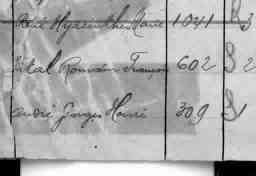 René Hyacinthe Marie 1041 3
Vital Romain François 602 2
André Georges Henri 309 1